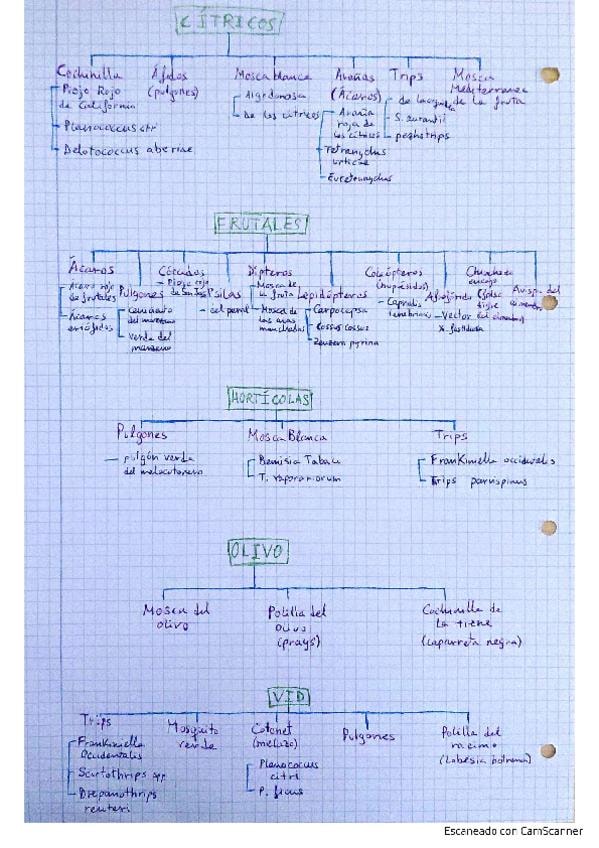 CÍTRICOS
Cochinilla
Piojo Rojo
de California
Planococcus citri
Delotococcus aberiae
Áfidos
(pulgones)
Mosca blanca
Algodonosa
De los cítricos
Arañas
(Ácaros)
Araña
roja de
los cítricos
Tetranychus
urticae
Eutetranychus
Trips
de la
S. aurantii
pezhotrips
Mosca
Mediterranea
de la fruta
FRUTALES
Ácaros
Ácaro rojo
de frutales
Ácaros
eriófidos
Pulgones
Ceniciento
del manzano
verde del
manzano
Cóccidos
Piojo rojo
de San José
Psilas
del peral
Dípteros
Mosca de
la fruta
Mosca de
las alas
manchadas
Lepidópteros
Carpocapsa
Cossus cossus
Zeuzera pyrina
Coleópteros
(bupréstidos)
Capnodis
tenebrionis
Vector
X. fastidiosa
Avispa del
almendro
HORTÍCOLAS
Pulgones
pulgón verde
del melocotonero
Mosca Blanca
Bemisia Tabaci
T. vaporariorum
Trips
Frankiniella occidentalis
Trips parvispinus
OLIVO
Mosca del
olivo
Polilla del
olivo
(prays)
Cochinilla de
la tizne
(caparreta negra)
VID
Trips
Frankiniella
Occidentalis
Scirtothrips spp
Drepanothrips
reuteri
Mosquito
verde
Cotonet
(melazo)
Planococcus
citri
P. ficus
Pulgones
Polilla del
racimo
(Lobesia botrana)
Escaneado con CamScanner